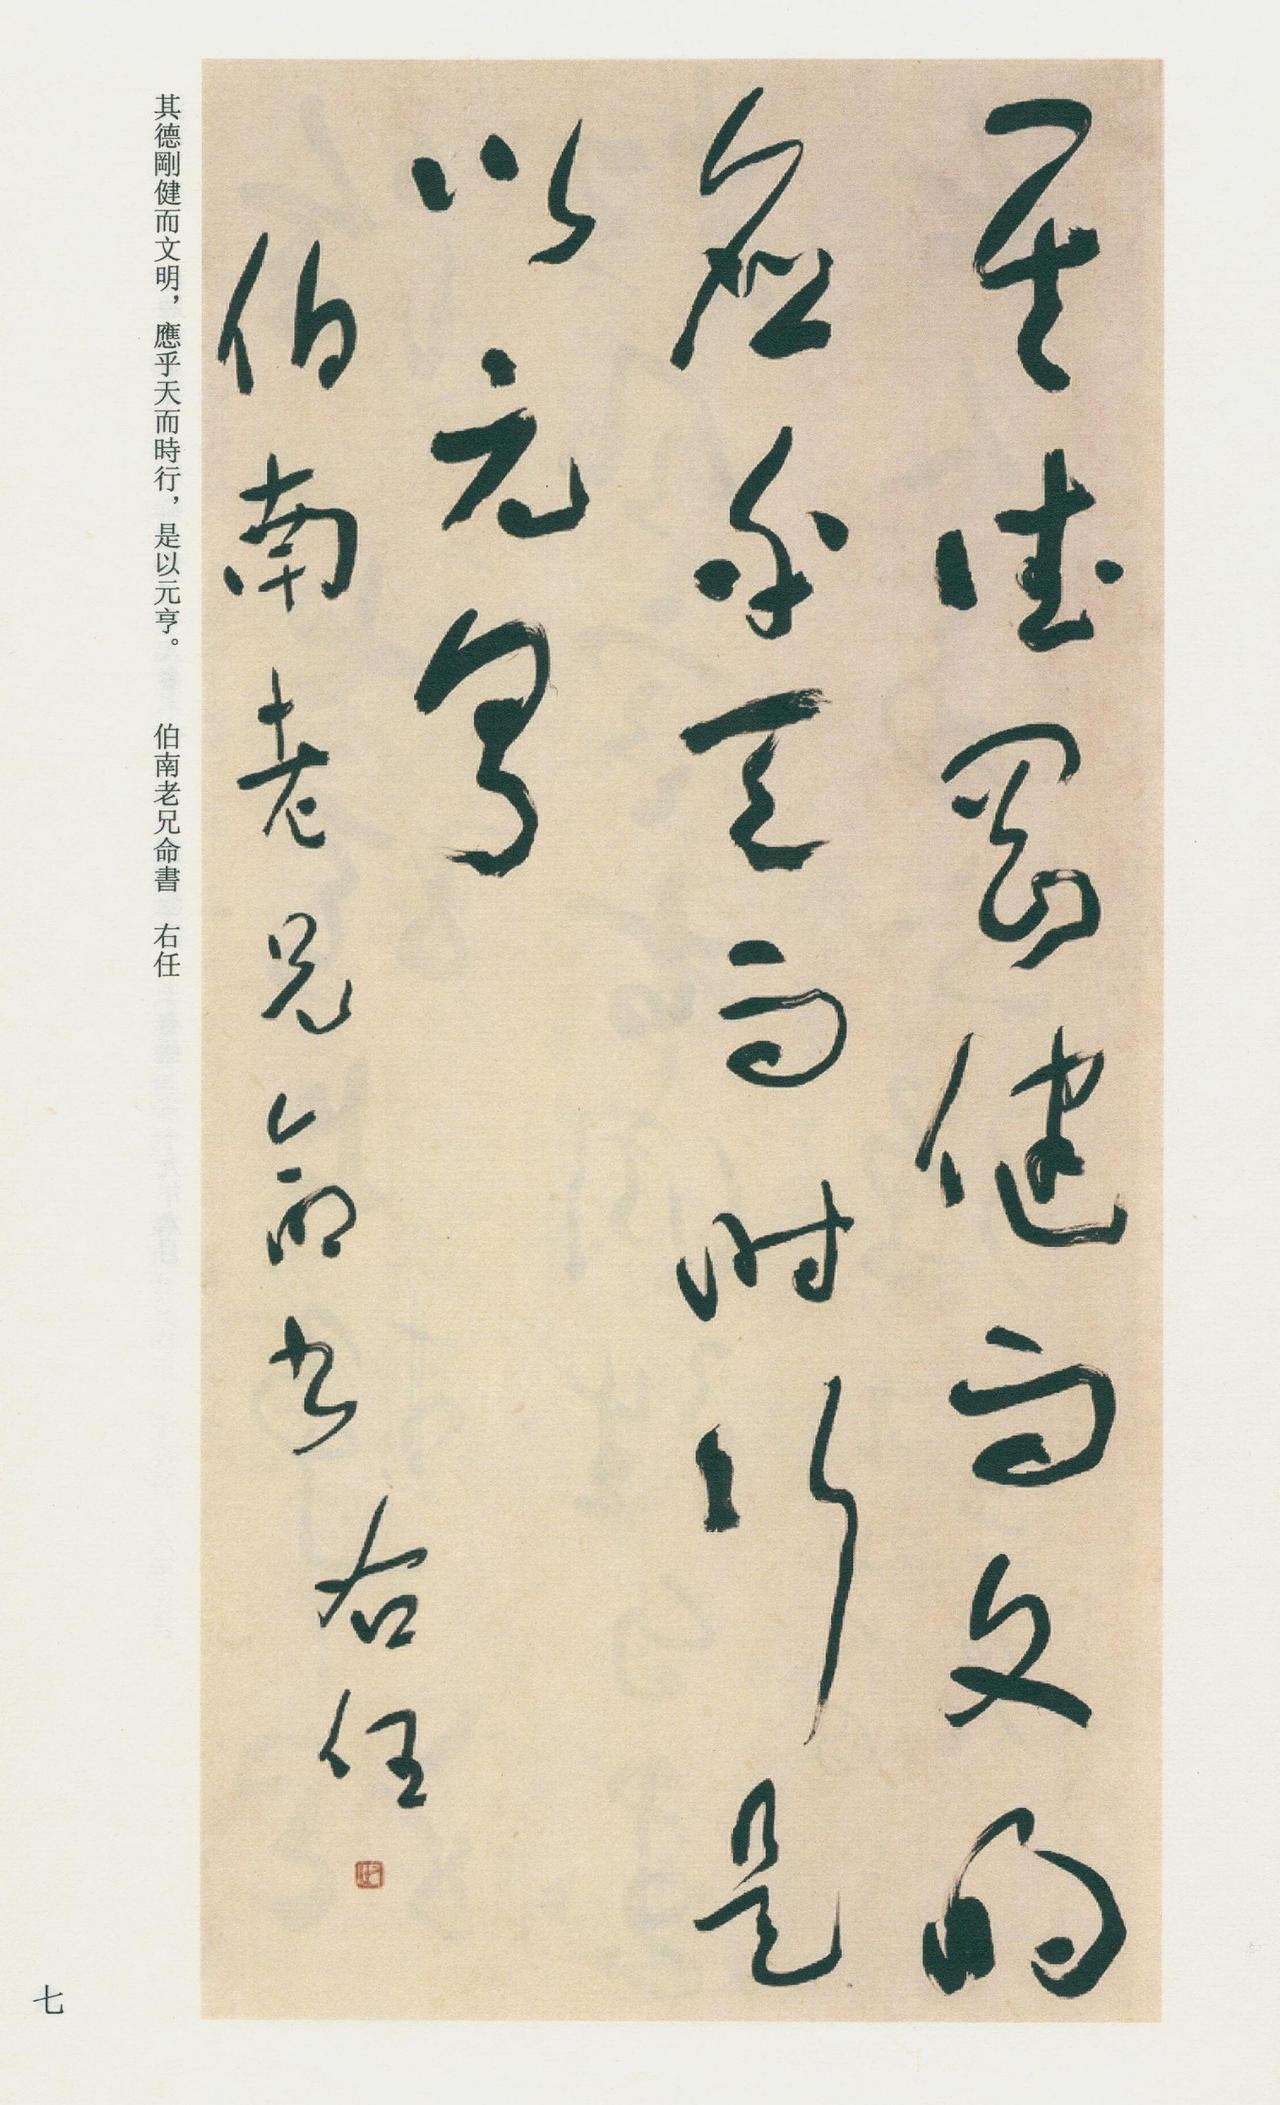 其德剛健而文明
應乎天而時行是
以元亨
伯南老兄命書
右任
其德剛健而文明，應乎天而時行，是以元亨。　伯南老兄命書　右任
七